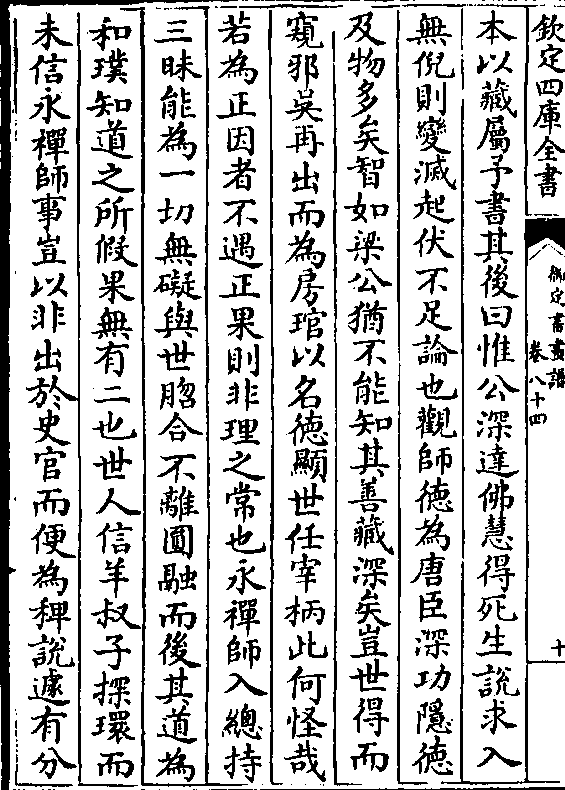 欽定四庫全書
御定書畫譜
卷八十四
十
本以藏屬予書其後曰惟公深達佛慧得死生說求入
無倪則變滅起伏不足論也觀師德為唐臣深功隱德
及物多矣智如梁公猶不能知其善藏深矣豈世得而
窺邪吳再出而為房琯以名德顯世任宰柄此何怪哉
若為正因者不遇正果則非理之常也永禪師入總持
三昧能為一切無礙與世脗合不離圓融而後其道為
和璞知道之所假果無有二也世人信羊叔子探環而
未信永禪師事豈以非出於史官而便為稗說遽有分